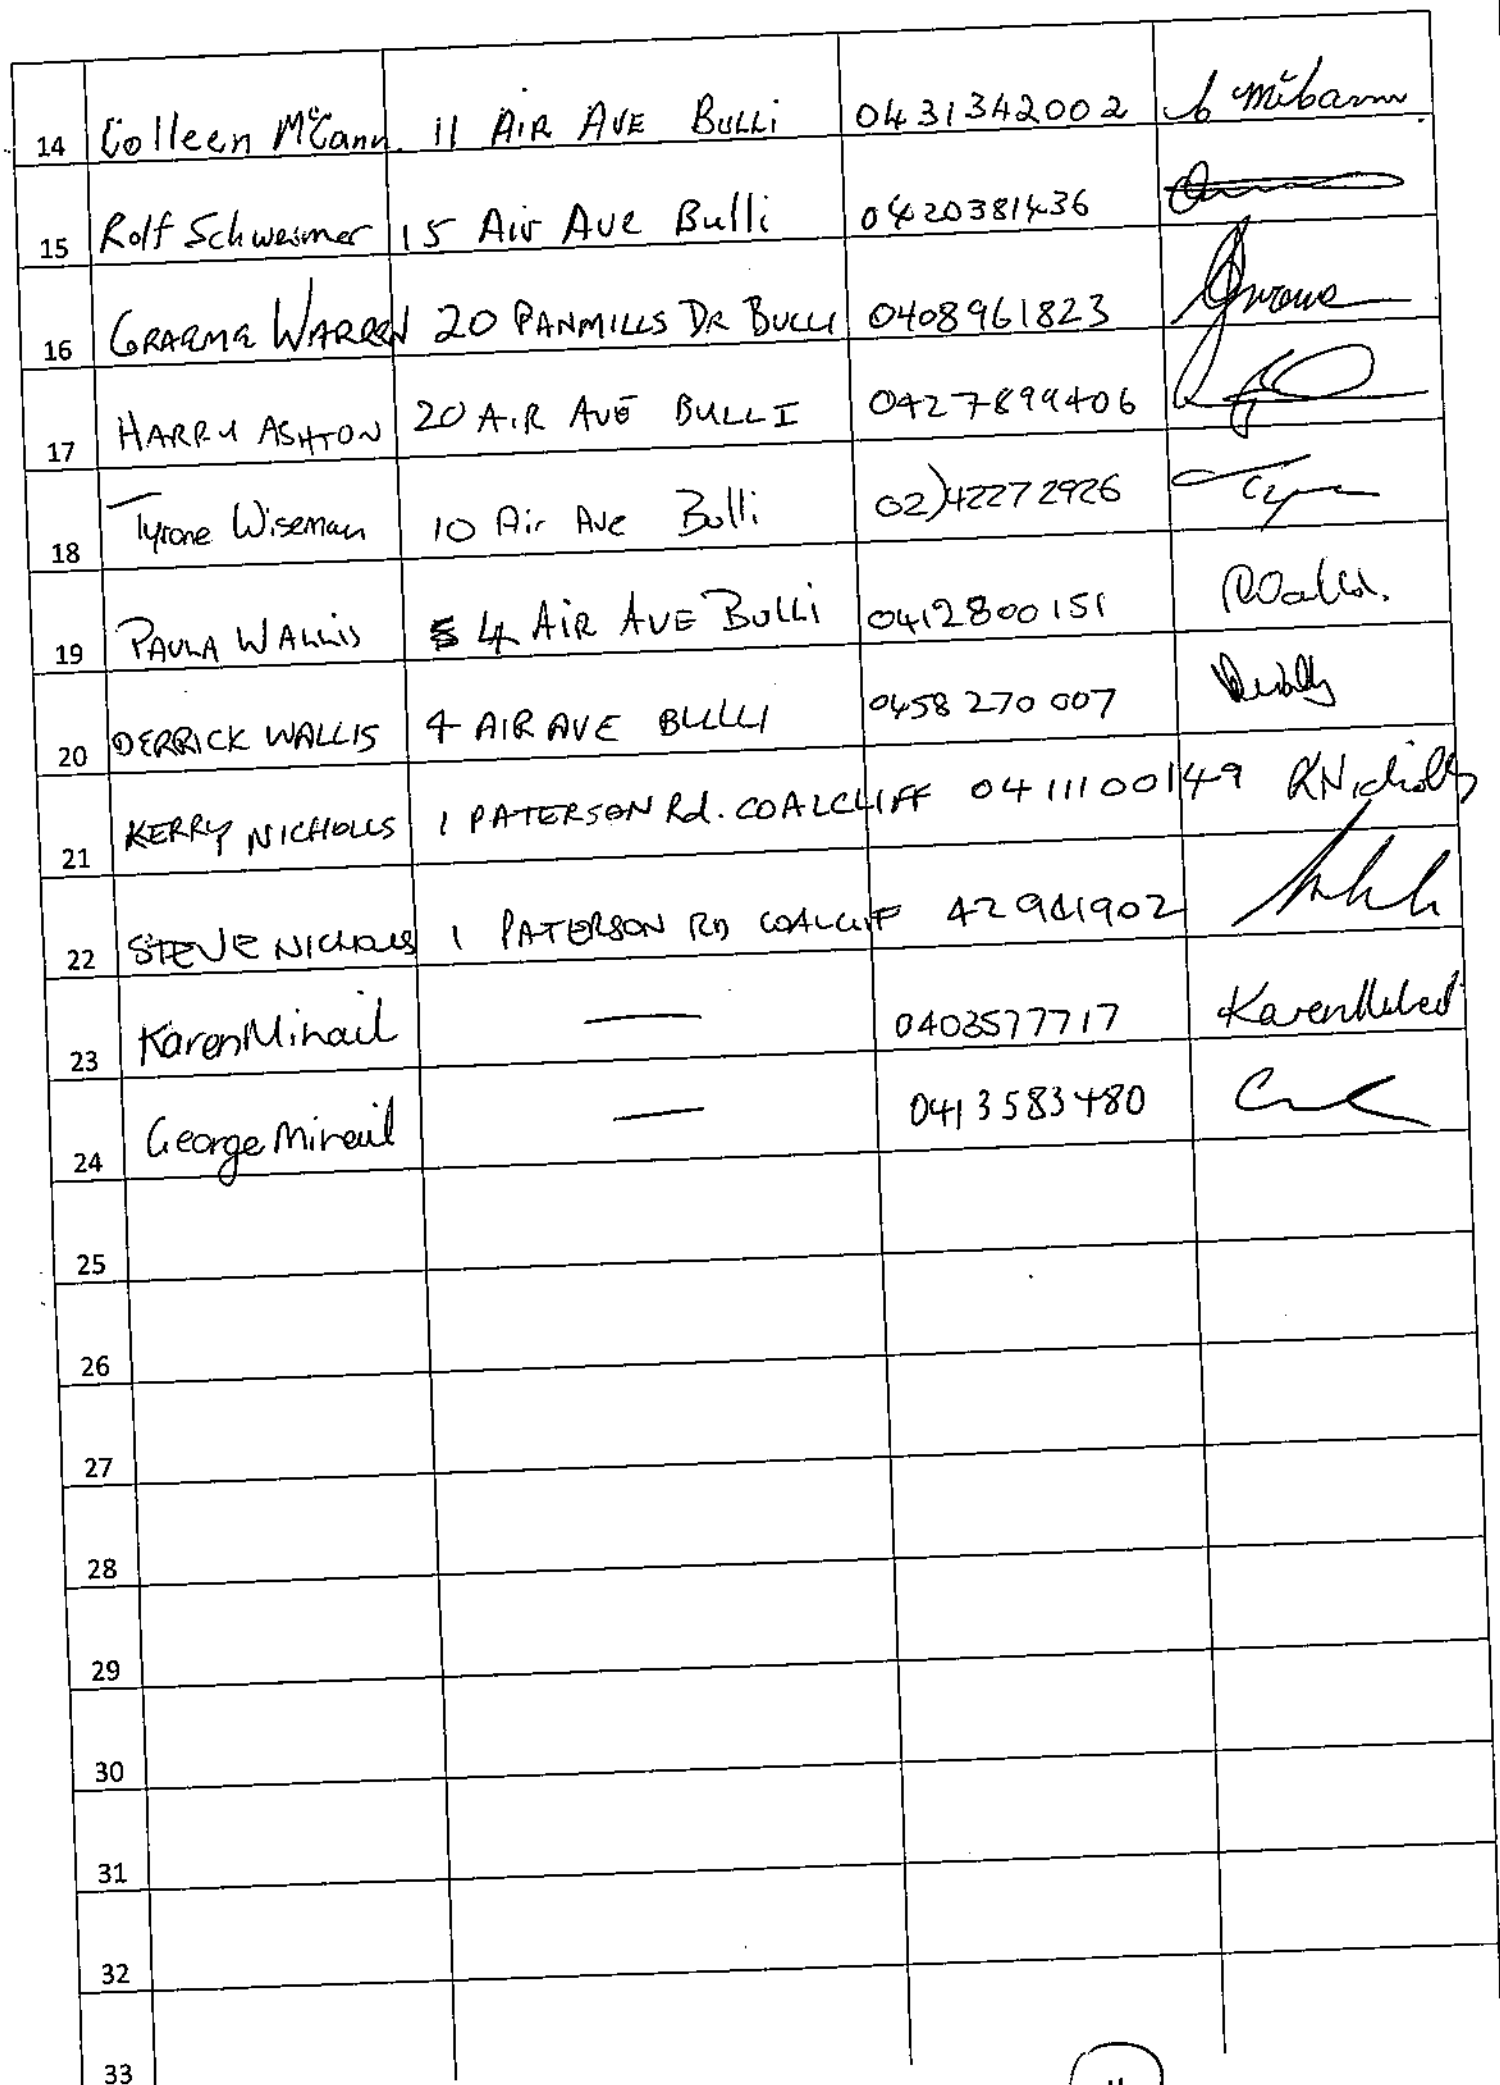 14 Colleen McCann 11 AIR AVE BULLI 0431342002
15 Rolf Schweimer 15 Air Ave Bulli 0420381436
16 GRAEME WARREN 20 PANMILLS DR BULLI 0408961823
17 HARRY ASHTON 20 AIR AVE BULLI 0427899406
18 Tyrone Wiseman 10 Air Ave Bulli 02)42272926
19 PAULA WALLIS 4 AIR AVE BULLI 0412800151
20 DERRICK WALLIS 4 AIR AVE BULLI 0458 270 007
21 KERRY NICHOLLS 1 PATERSON Rd. COALCLIFF 0411100149 KNicholls
22 STEVE NICHOLLS 1 PATERSON RD COALCLIF 42941902
23 Karen Mihail — 0403577717 Karen Mihail
24 George Mihail — 0413583480
25
26
27
28
29
30
31
32
33